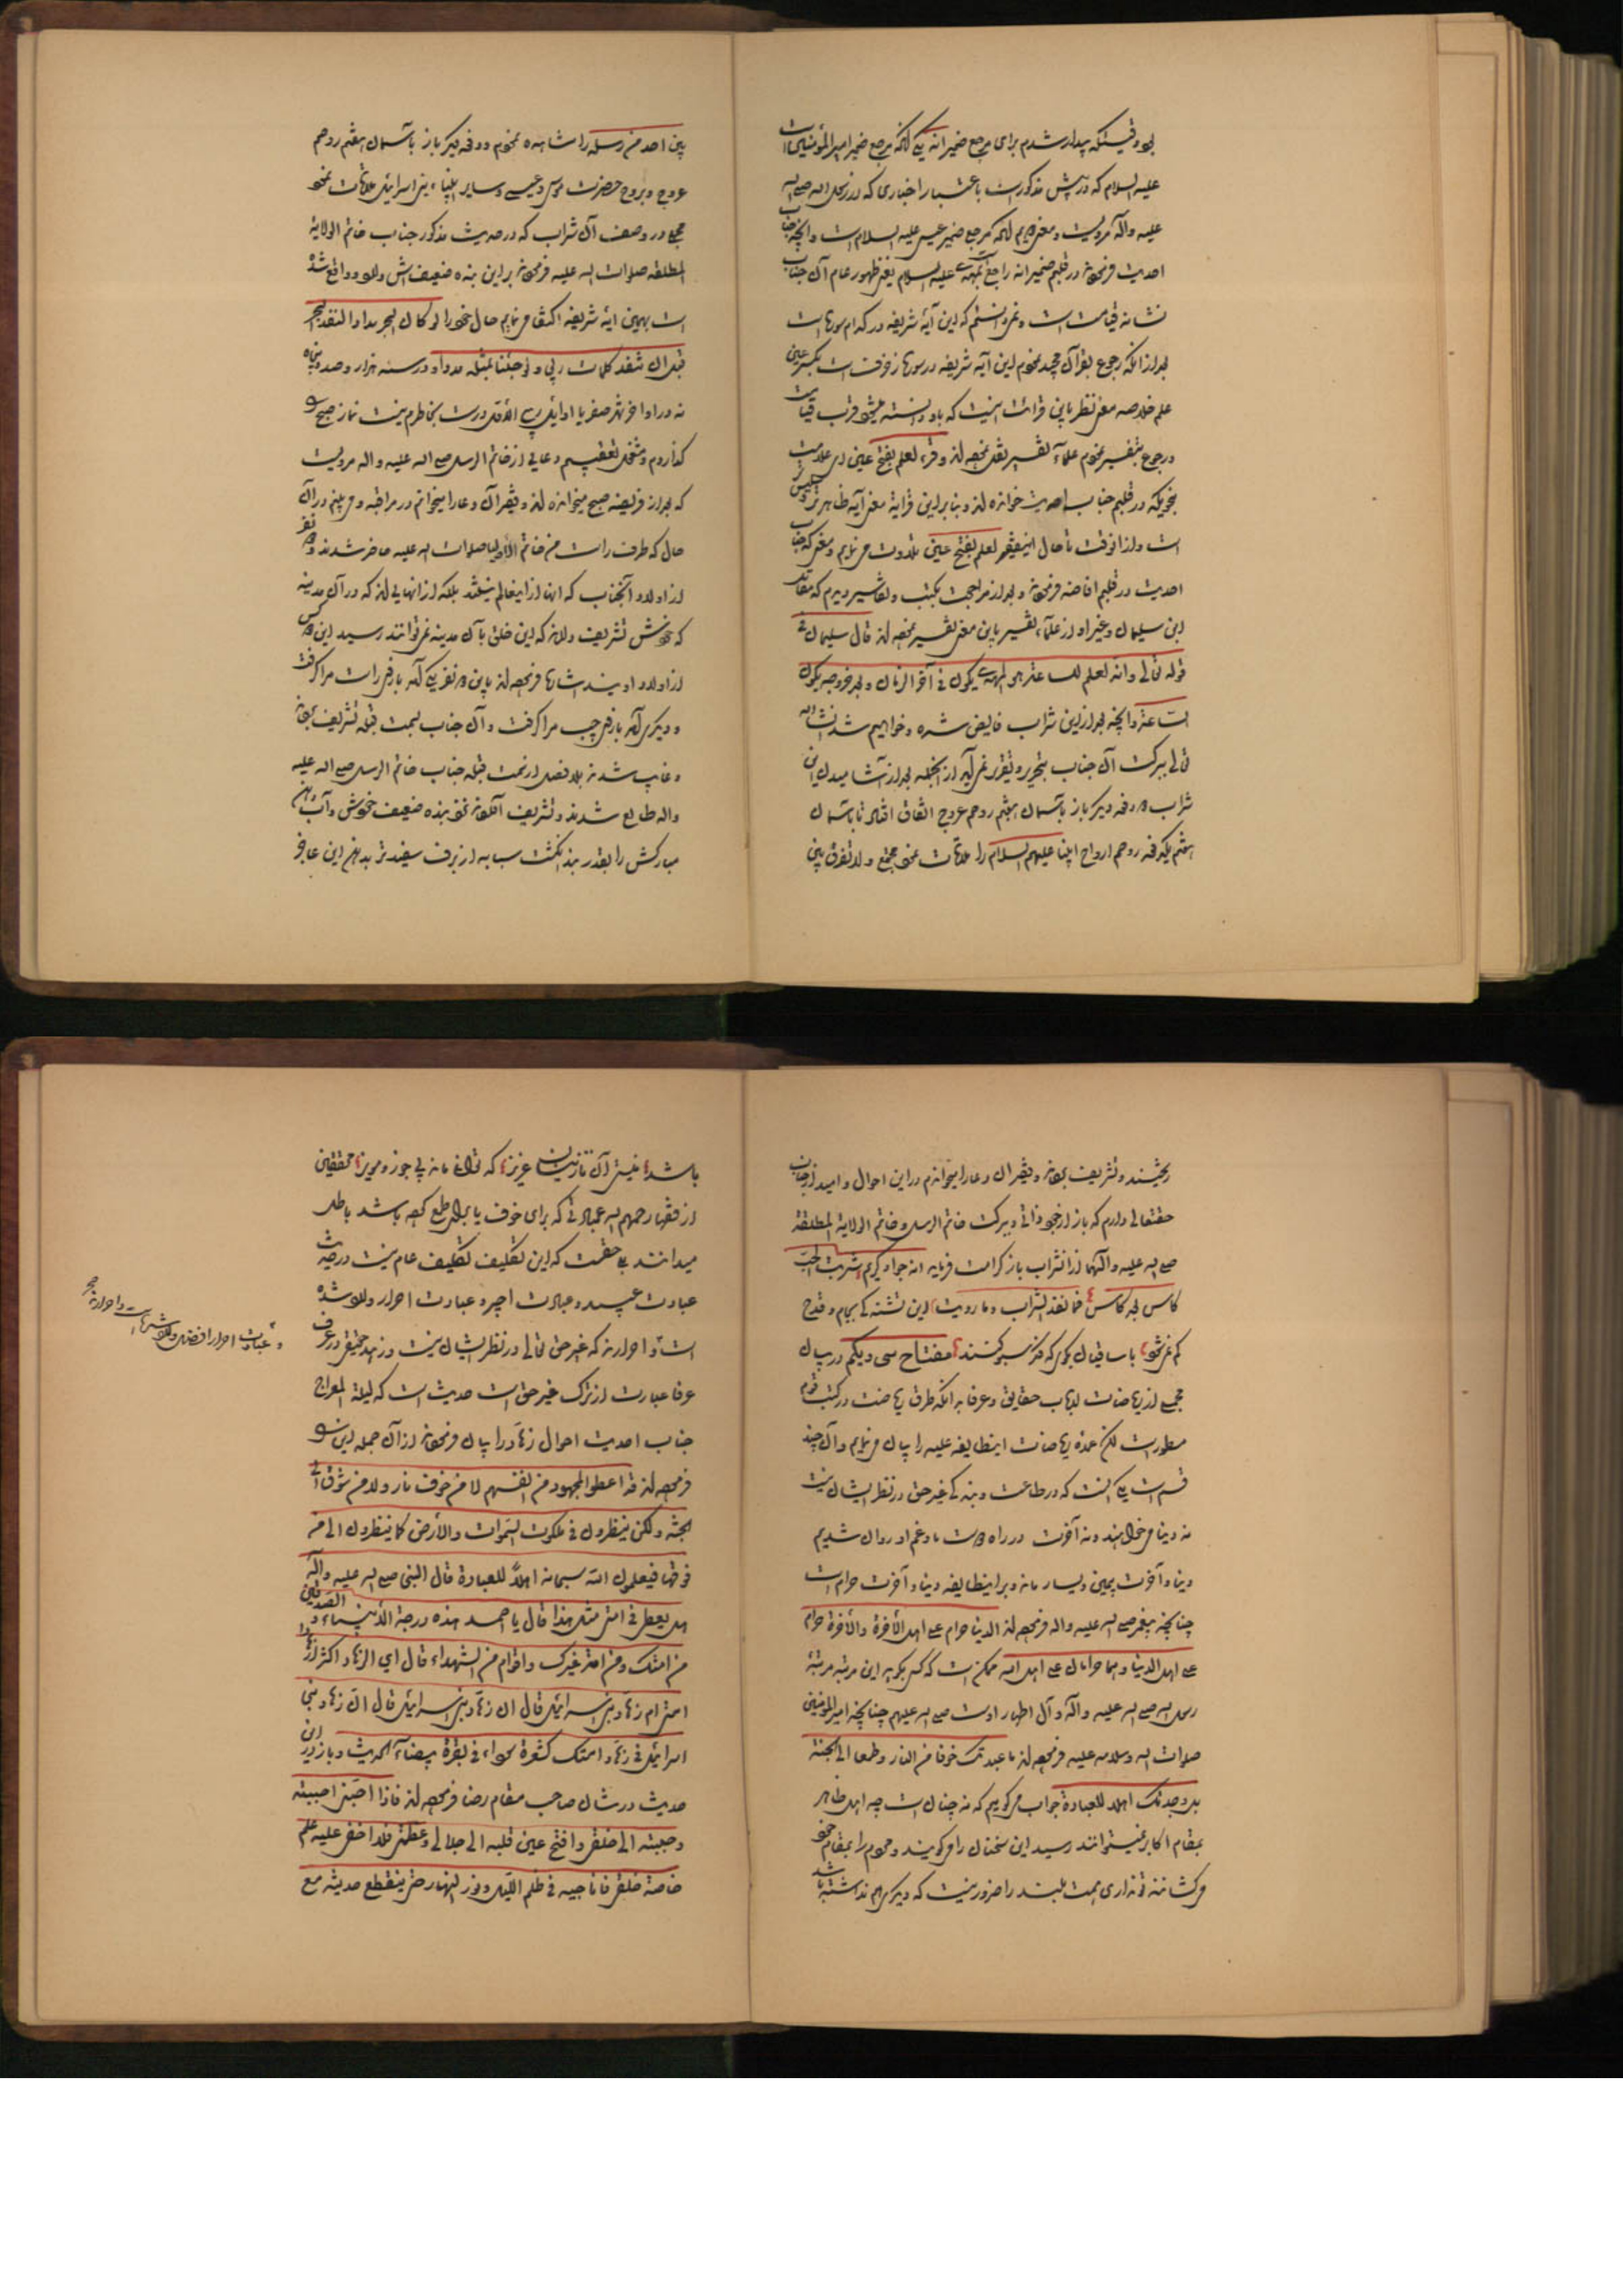 بود وقتیکه بیدار شدم برای مرجع ضمیر انه یکی آنکه مرجع ضمیر امیر المؤمنین است
علیه السلام که در پیش مذکور است باعتبار اخباری که از رسول الله صلی الله
علیه وآله مرویست و معنی دویم آنکه مرجع ضمیر عیسی علیه السلام است و آنچه جناب
احدیت فرموده در قلبم ضمیر انه راجع بمهدی علیه السلام یعنی ظهور عام آن جناب
نشانه قیامت است و نمیدانستم که این آیه شریفه در کدام سوره است
بعد از آنکه رجوع بقرآن مجید نمودم این آیه شریفه در سوره زخرفست بکسر عین
علم خلاصه معنی نظر باین قرائت اینست که باو دانسته میشود قرب قیامت
و رجوع بتفسیر نمودم علماء تفسیر نقل نموده‌اند وقرء لعلم بفتح عین ای علامت
بنحویکه در قلبم جناب احدیت خوانده‌اند و بنابراین قرایة معنی آیه ظاهرتر و سلیس‌تر
است و از آنوقت تا حال اینفقیر لعلم بفتح عین تلاوت می‌نمایم و معنی که جناب
احدیت در قلبم افاضه فرموده و بعد از مراجعت بکتب و تفاسیر دیدم که مقاتل
ابن سلیمان و غیر او از علماء تفسیر باین معنی تفسیر نموده‌اند قال سلیمان فی
قوله تعالی وانه لعلم للساعة هو المهدی یکون فی آخر الزمان و بعد خروجه یکون
الساعة و آنچه بعد از این شراب فایض شده و خواهیم شد انشاء الله
تعالی ببرکت آن جناب بتحریر و تقریر نمی‌آید از آنجمله بعد از آشامیدن این
شراب دو دفعه دیگر باز بآسمان هفتم روحم عروج اتفاق افتاد تا بآسمان
هفتم یکدفعه روحم ارواح انبیا علیهم السلام را ملاقات نمود مجتمع ولا نفرق بین
بین احد من رسله را مشاهده نمودم و دفعه دیگر باز بآسمان هفتم روحم
عروج و بروح حضرت موسی و عیسی و سایر انبیاء بنی اسرائیل ملاقات نمود
مجملا در وصف آن شراب که در حدیث مذکور جناب خاتم الولایة
المطلقه صلوات الله علیه فرموده بر این بنده ضعیفش دلالت و واقع شده
است بهمین آیه شریفه اکتفا می‌نمایم حال خود را لو کان البحر مدادا لنفد البحر
قبل ان تنفد کلمات ربی ولو جئنا بمثله مددا و در سنه هزار و صد و پنجاه
نه در اواخر شهر صفر یا اوایل ربیع الاول درست بخاطرم نیست نماز صبح را
گذاردم و مشغول تعقیبم دعایی از خاتم الرسل صلی الله علیه واله مرویست
که بعد از فریضه صبح میخوانده‌اند و بقرآن و عارا میخوانم در مراقبه و می‌بینم در آن
حال که طرف راست من خاتم الأولیا صلوات الله علیه حاضر شدند و دو نفر
از اولاد آنجناب که اینها از اینعالم نیستند بلکه از آنهایی‌اند که در آن مدینه
که خودش تشریف دارند که این خلق بآن مدینه نمی‌توانند رسید این دو کس
از اولاد اویند اشاره فرموده‌اند باین دو نفر یکی آمد بازوی راست مرا گرفت
و دیگری آمد بازوی چپ مرا گرفت و آن جناب بسمت قبله تشریف برده
و غایب شدند بلا فصل از سمت قبله جناب خاتم الرسل صلی الله علیه
واله طالع شدند و تشریف آوردند نزد بنده ضعیف خودش و آب دهن
مبارکش را بقدر بند انگشت سبابه از برف سفیدتر بدهن این عاجز
ریختند و تشریف بردند و بقرآن و عارا میخوانم در این احوال و امید از جناب
حقتعالی دارم که باز از خود ذاتی و ببرکت خاتم الرسل و خاتم الولایة المطلقة
صلی الله علیه وآلهما از آنشراب باز کرامت فرماید انه جواد کریم شربت الحب
کاس بعد کاس فما نفد الشراب وما رویت این تشنه که بجام و قدح
کم نمی‌شود با ساقیان بگوی که فکر سبو کنند مفتاح سی و یکم در بیان
مجمعی از ریاضات ارباب حقایق و عرفا بدانکه طرق ریاضت در کتب قوم
مسطور است لکن عمده ریاضات اینطایفه علیه را بیان می‌نمایم و آن چند
قسم است یکی آنست که در طاعت و بندگی غیر حق در نظر ایشان نیست
نه دنیا می‌خواهند و نه آخرت در راه دوست ما و غم او روان شدیم
دنیا و آخرت بیمین و یسار مانده و بر اینطایفه دنیا و آخرت حرام است
چنانچه پیغمبر صلی الله علیه واله فرموده‌اند الدنیا حرام علی اهل الآخرة والآخرة حرام
علی اهل الدنیا وهما حرامان علی اهل الله ممکن است که کسی بگوید این مرتبه مرتبهٔ
رسول الله صلی الله علیه وآله و آل اطهار اوست صلی الله علیهم چنانچه امیر المؤمنین
صلوات الله وسلامه علیه فرموده‌اند ما عبدتک خوفا من النار وطمعا الی الجنة
بل وجدتک اهلا للعبادة جواب می‌گوییم که نه چنان است چه اهل ظاهر
بمقام اکابر نمیتوانند رسید این سخنان را می‌گویند و مردم را بمقام خود
می‌کشانند تو نداری همت بلند را ضرور نیست که دیگری هم نداشته باشد
باشد نیستی آن نازنینان عزیز که تو مانده پی جوز و مویز محققین
از فقها رحمهم الله عبادتی که برای خوف یا برای طمع کرده باشد باطل
میدانند بی حقیقت که این تکلیف تکلیف عام نیست در حدیث
عبادت عبید و عبادت اجیر و عبادت احرار وارد شده
است و احرارند که غیر حق تعالی در نظر ایشان نیست و زهد حقیقی در عرف
عرفا عبارت از ترک غیر حق است حدیث است که لیلة المعراج
جناب احدیت احوال زهاد را بیان فرموده از آن جمله این را
فرموده‌اند قد اعطوا المجهود من انفسهم لا من خوف نار ولا من شوق الی
الجنة ولکن ینظرون فی ملکوت السموات والأرض کما ینظرون الی من
فوقها فیعلمون ان الله سبحانه اهلاً للعبادة قال النبی صلی الله علیه وآله
هل یعطی فی امتی مثل هذا قال یا احمد هذه درجة الأنبیاء والصدیقین
من امتک ومن امة غیرک واقوام من الشهداء قال ای الزهاد اکثر زهاد
امتی ام زهاد بنی اسرائیل قال ان زهاد بنی اسرائیل قال ان زهاد بنی
اسرائیل فی زهاد امتک کشعرة سوداء فی بقرة بیضاء الحدیث و باز در این
حدیث در شان صاحب مقام رضا فرموده‌اند فاذا احبنی احببته
وحببته الی خلقی وافتح عین قلبه الی جلالی وعظمتی فلا اخفی علیه علم
خاصة خلقی فاناجیه فی ظلم اللیل ونور النهار حتی ینقطع حدیثه مع
و عبادت احرار افضل